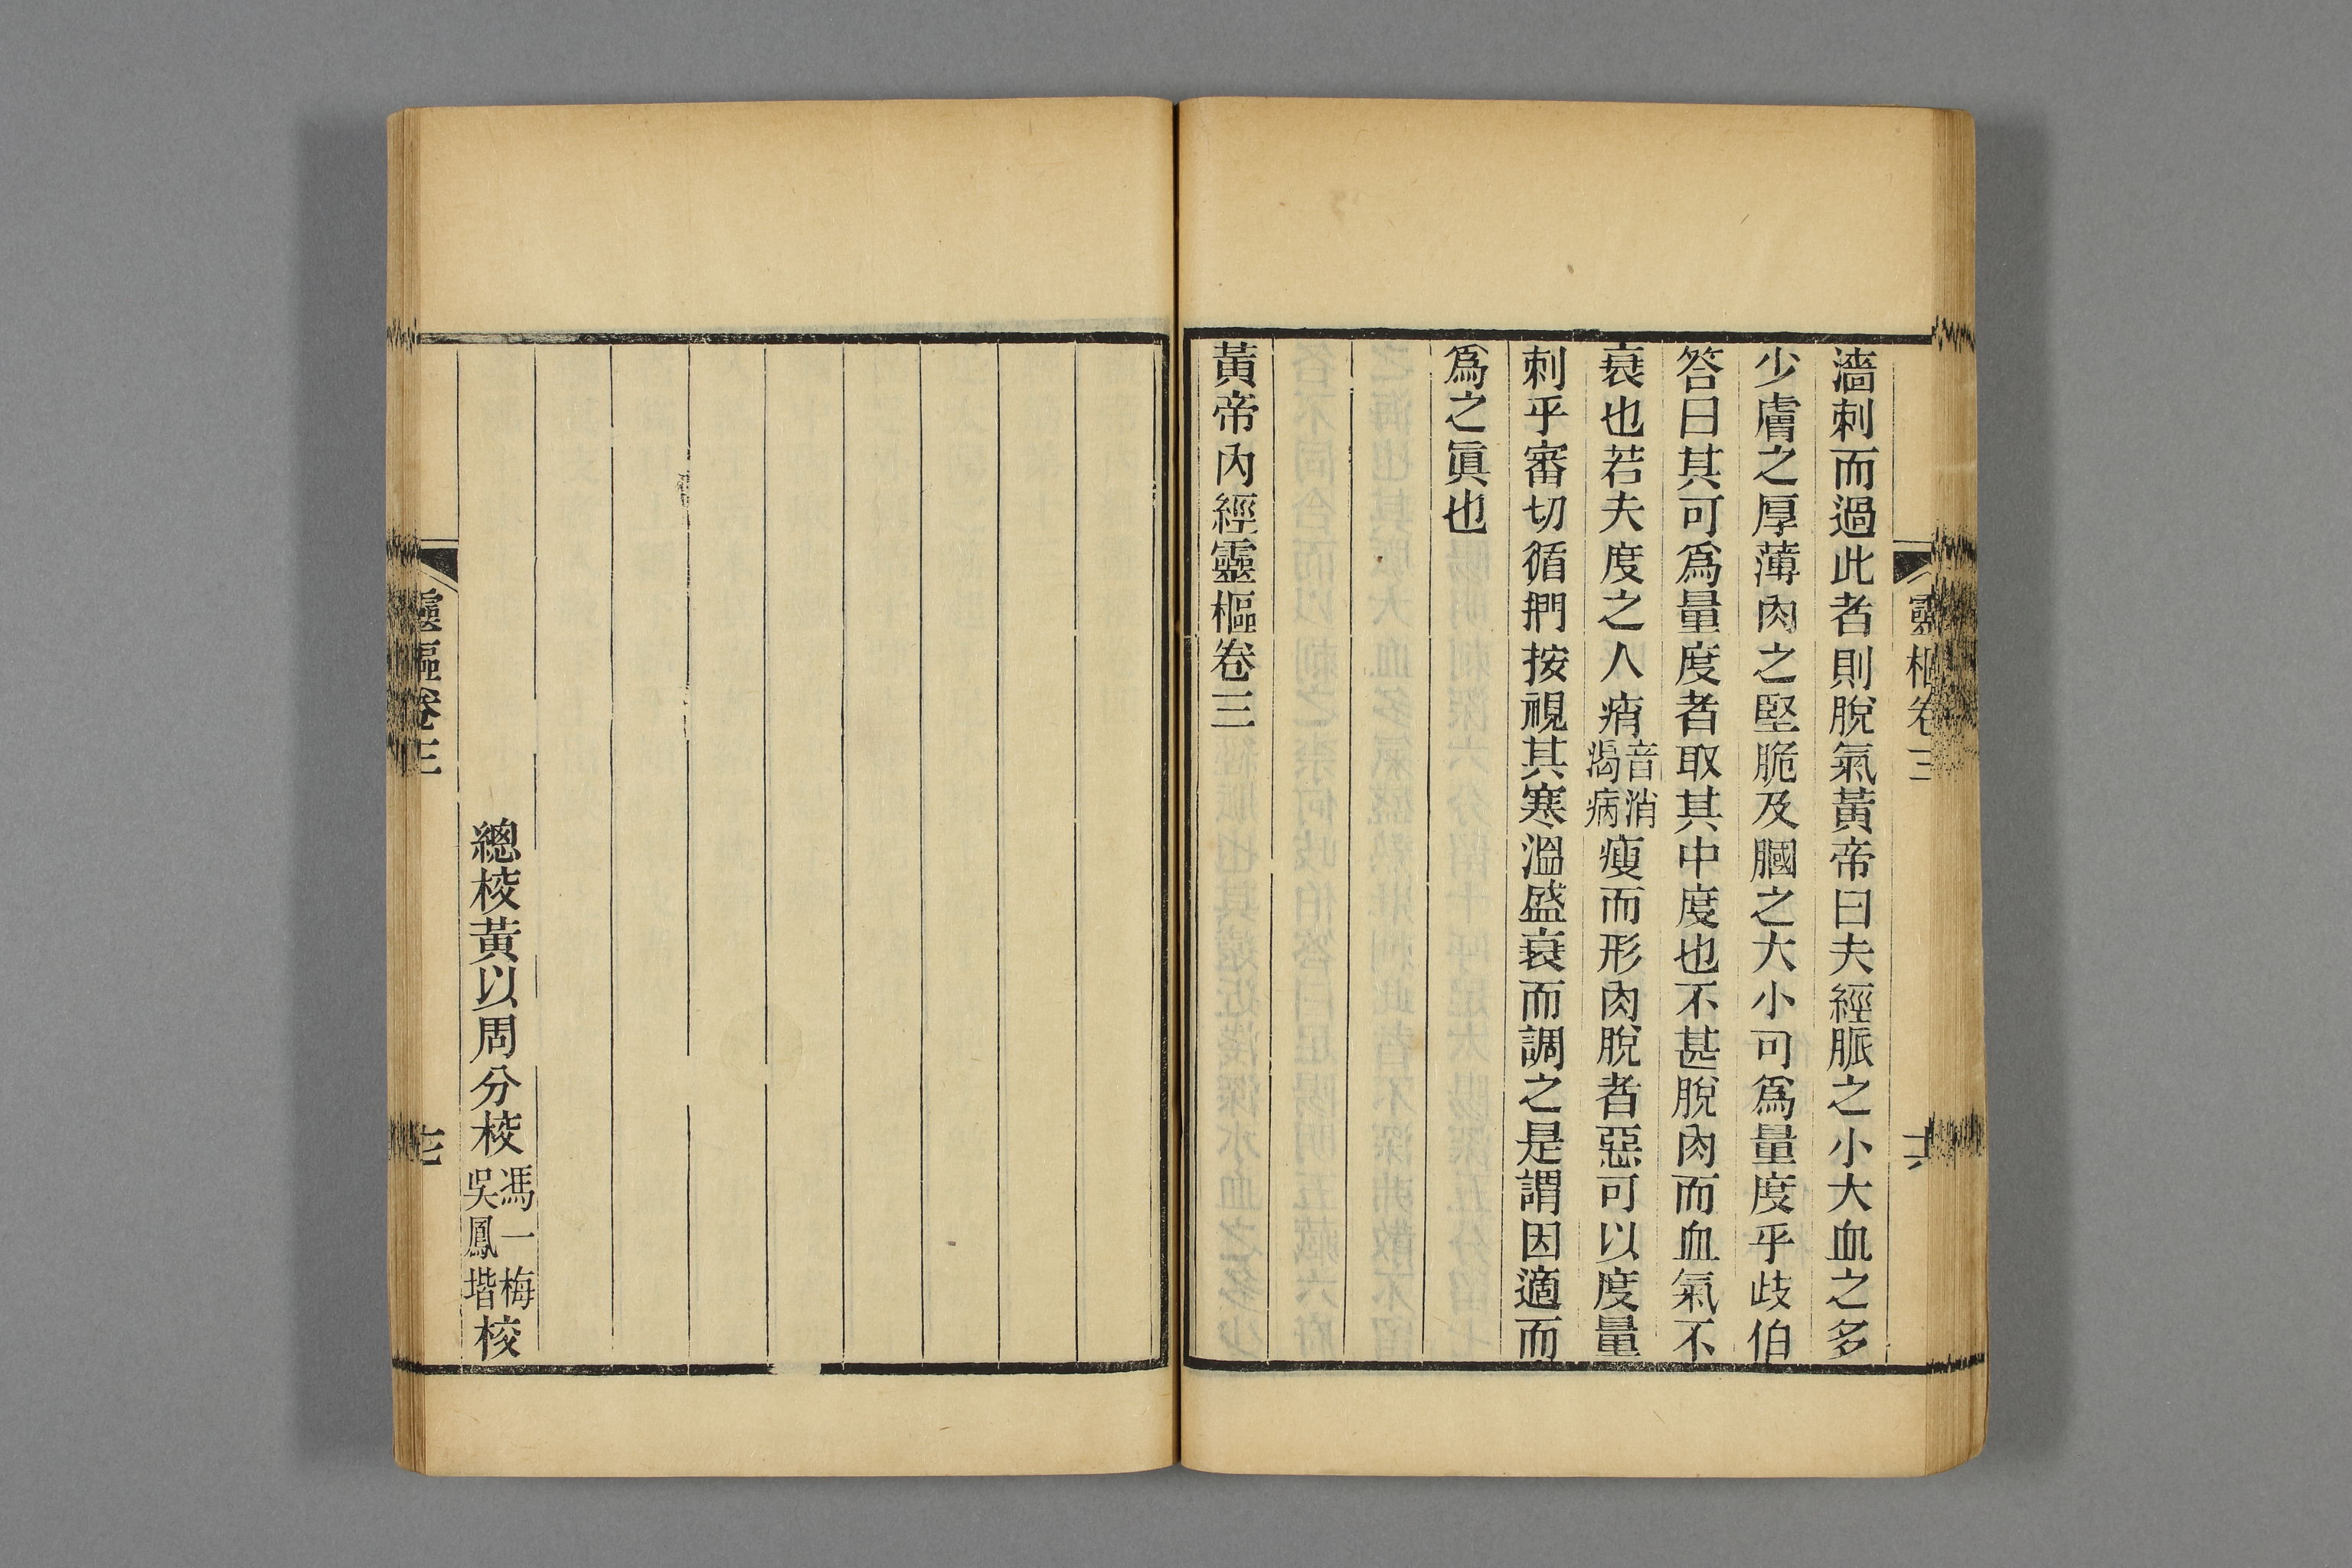 靈樞卷三
十六
濇刺而過此者則脫氣黃帝曰夫經脈之小大血之多
少膚之厚薄肉之堅脆及膕之大小可爲量度乎歧伯
答曰其可爲量度者取其中度也不甚脫肉而血氣不
衰也若夫度之人痟音消渴病瘦而形肉脫者惡可以度量
刺乎審切循捫按視其寒溫盛衰而調之是謂因適而
爲之眞也
黃帝內經靈樞卷三
總校黃以周分校馮一梅吳鳳堦校
靈樞卷三